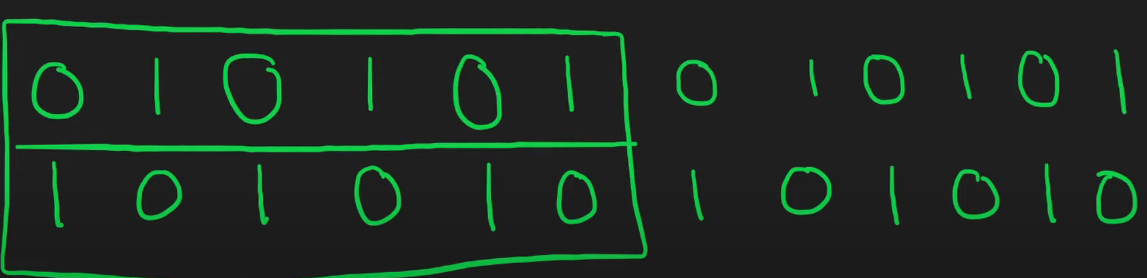 0 1 0 1 0 1 0 1 0 1 0 1
1 0 1 0 1 0 1 0 1 0 1 0